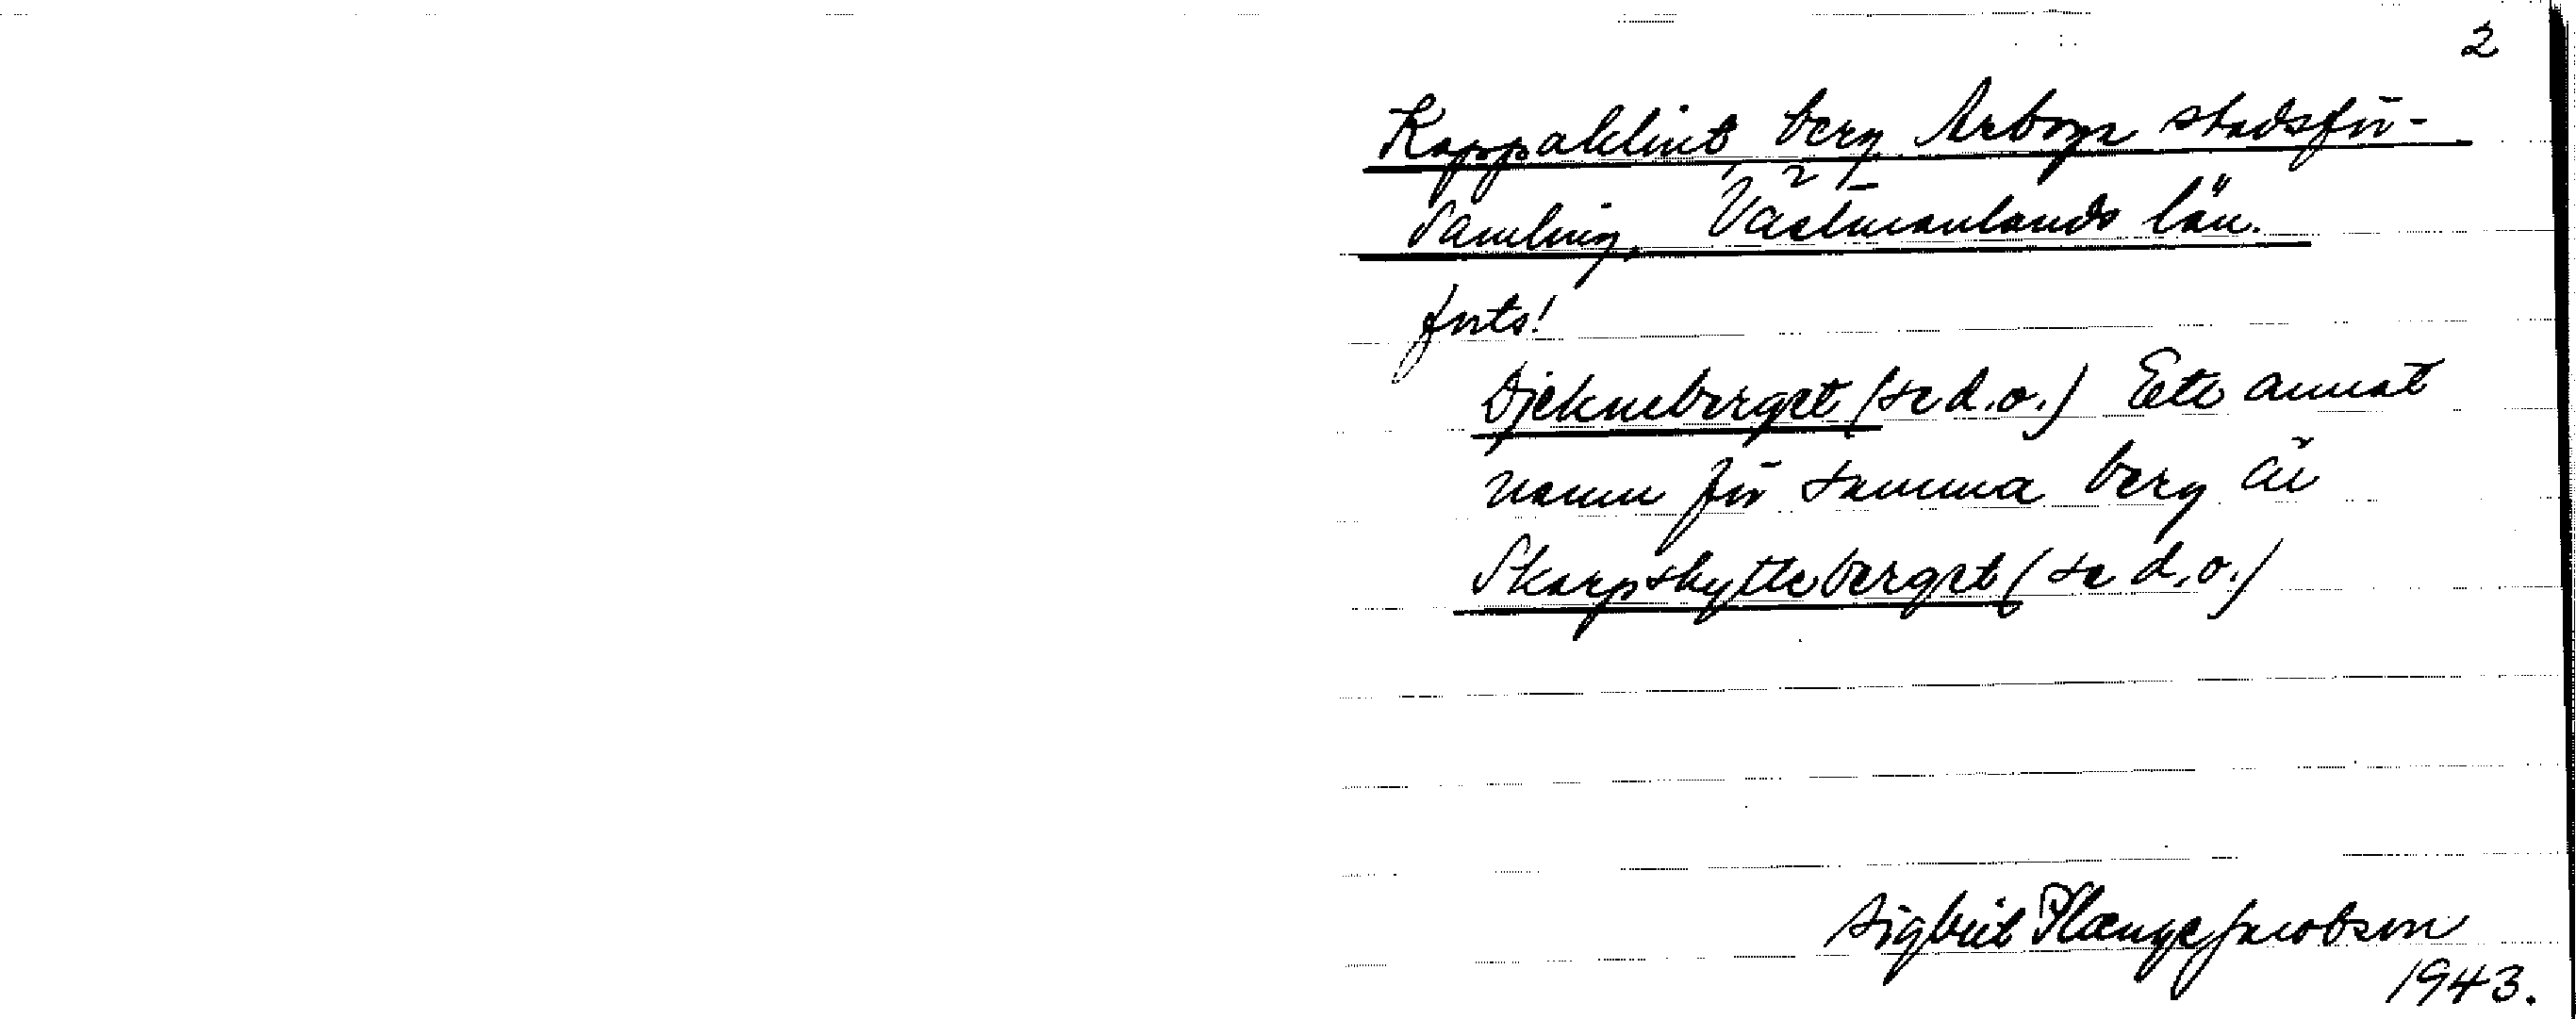 2
Kopparklint, berg, Arboga stadsför-
samling, Västmanlands län.
forts!
Djekneberget (se d.o.) Ett annat
namn för samma berg är
Skarpskytteberget (se d.o.)
Sigbrit Plænge Jacobson
1943.